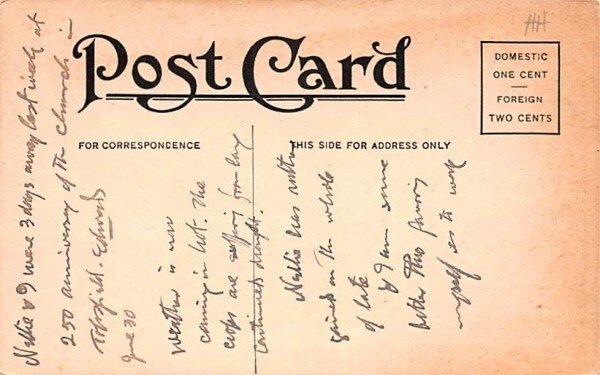 Post Card
FOR CORRESPONDENCE
THIS SIDE FOR ADDRESS ONLY
DOMESTIC
ONE CENT
FOREIGN
TWO CENTS
Nellie & I were 3 days away last week at
250 anniversary of the Church in
Topsfield. Edward
June 30
Weather is now
coming in hot. The
crops are suffering from long
continued drought.
Nellie has rather
gained on the whole
of late
& I am some
better Tho favoring
myself as to work